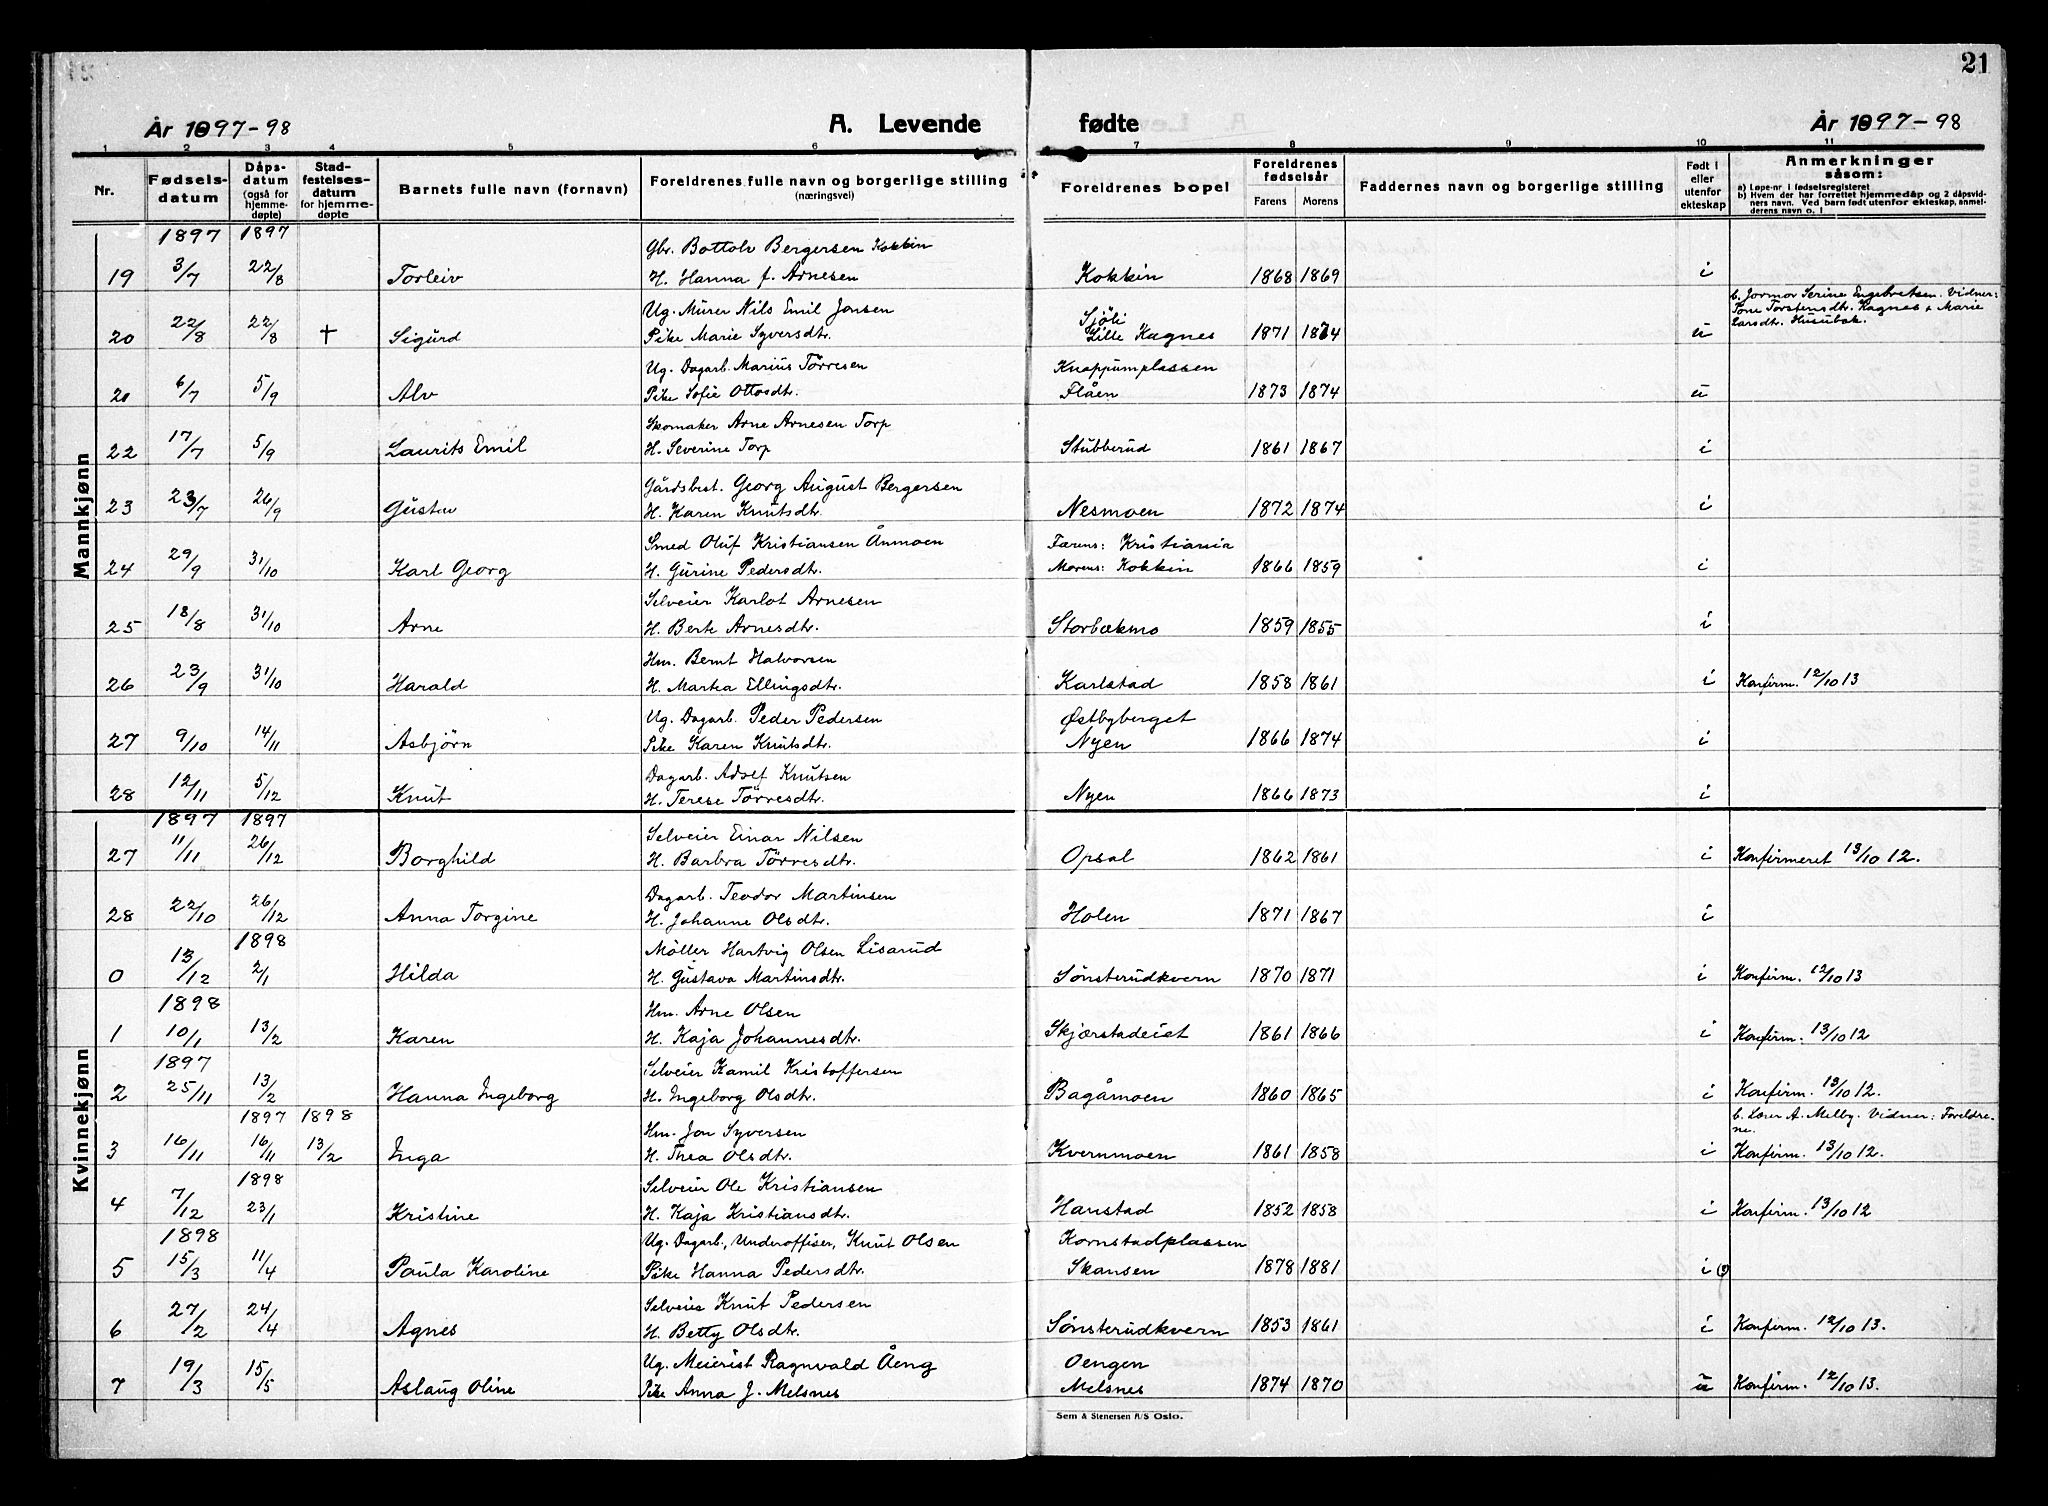 21
År 1897-98 A. Levende fødte År 1897-98
1 2 3 4 5 6 7 8 9 10 11
Nr. Fødselsdatum Dåpsdatum (også for hjemmedøpte) Stadfestelsesdatum for hjemmedøpte Barnets fulle navn (fornavn) Foreldrenes fulle navn og borgerlige stilling (næringsvei) Foreldrenes bopel Foreldrenes fødselsår Farens Morens Faddernes navn og borgerlige stilling Født i eller utenfor ekteskap Anmerkninger såsom:
a) Løpe-nr i fødselsregisteret
b) Hvem der har forrettet hjemmedåp og 2 dåpsvidners navn. Ved barn født utenfor ekteskap, anmelderens navn o. l
Mannkjønn
1897 1897 Gbr. Bottolv Bergersen Kokkin
19 3/7 22/8 Torleiv H. Hanna f. Arnesen Kokkin 1868 1869 i
Ug. Murer Nils Emil Jonsen Sjöli b. Jormor Serine Engebretsen. Vidner:
Tone Torstensdtr. Hagnes + Marie
20 22/8 22/8 † Sigurd Pike Marie Syversdtr. Lille Hagnes 1871 1874 u Larsdtr. Husubak.
Ug. Dagarb. Marius Törresen Knappumplassen
21 6/7 5/9 Alv Pike Sofie Ottosdtr. Flåen 1873 1874 u
Skomaker Arne Arnesen Torp
22 17/7 5/9 Laurits Emil H. Severine Torp Stubberud 1861 1867 i
Gårdsbest. Georg August Bergersen
23 23/7 26/9 Gustav H. Karen Knutsdtr. Nesmoen 1872 1874 i
Smed Oluf Kristiansen Ånmoen Farens: Kristiania
24 29/9 31/10 Karl Georg H. Gurine Pedersdtr. Morens: Kokkin 1866 1859 i
Selveier Karlot Arnesen
25 18/8 31/10 Arne H. Berte Arnesdtr. Storbækmo 1859 1855 i
Hm. Bernt Halvorsen
26 23/9 31/10 Harald H. Martea Ellingsdtr. Karlstad 1858 1861 i Konfirm. 12/10 13
Ug. Dagarb. Peder Pedersen Østbyberget
27 9/10 14/11 Asbjörn Pike Karen Knutsdtr. Nyen 1866 1874 i
Dagarb. Adolf Knutsen
28 12/11 5/12 Knut H. Terese Törresdtr. Nyen 1866 1873 i
Kvinnekjønn
1897 1897 Selveier Einar Nilsen
27 11/11 26/12 Borghild H. Barbra Törresdtr. Opsal 1862 1861 i Konfirmeret 13/10 12.
Dagarb. Teodor Martinsen
28 22/10 26/12 Anna Torgine H. Johanne Olsdtr. Holen 1871 1867 i
1898 Möller Hartvig Olsen Lisarud
0 13/12 2/1 Hilda H. Gustava Martinsdtr. Sønsterudkvern 1870 1871 i Konfirm. 12/10 13
1898 Hm. Arne Olsen
1 10/1 13/2 Karen H. Kaja Johannesdtr. Skjærstadeiet 1861 1866 i Konfirm. 13/10 12
1897 Selveier Kamil Kristoffersen
2 25/11 13/2 Hanna Ingeborg H. Ingeborg Olsdtr. Bagåmoen 1860 1865 i Konfirm. 13/10 12.
1897 1898 Hm. Jon Syversen b. Lærer A. Melby. Vidner: Foreldrene.
3 16/11 16/11 13/2 Inga H. Thea Olsdtr. Kvernmoen 1861 1858 i Konfirm. 13/10 12.
1898 Selveier Ole Kristiansen
4 7/12 23/1 Kristine H. Kaja Kristiansdtr. Hanstad 1852 1858 i Konfirm. 13/10 12
1898 Ug. Dagarb., Underoffiser, Knut Olsen Kornstadplassen
5 15/3 11/4 Paula Karoline Pike Hanna Pedersdtr. Skansen 1878 1881 i
Selveie Knut Pedersen
6 27/2 24/4 Agnes H. Betty Olsdtr. Sønsterudkvern 1853 1861 i Konfirm. 12/10 13.
Ug. Meierist Ragnvald Åeng Oengen
7 19/3 15/5 Aslaug Oline Pike Anna J. Melsnes Melsnes 1874 1870 u Konfirm. 12/10 13.
Sem & Stenersen A/S Oslo.